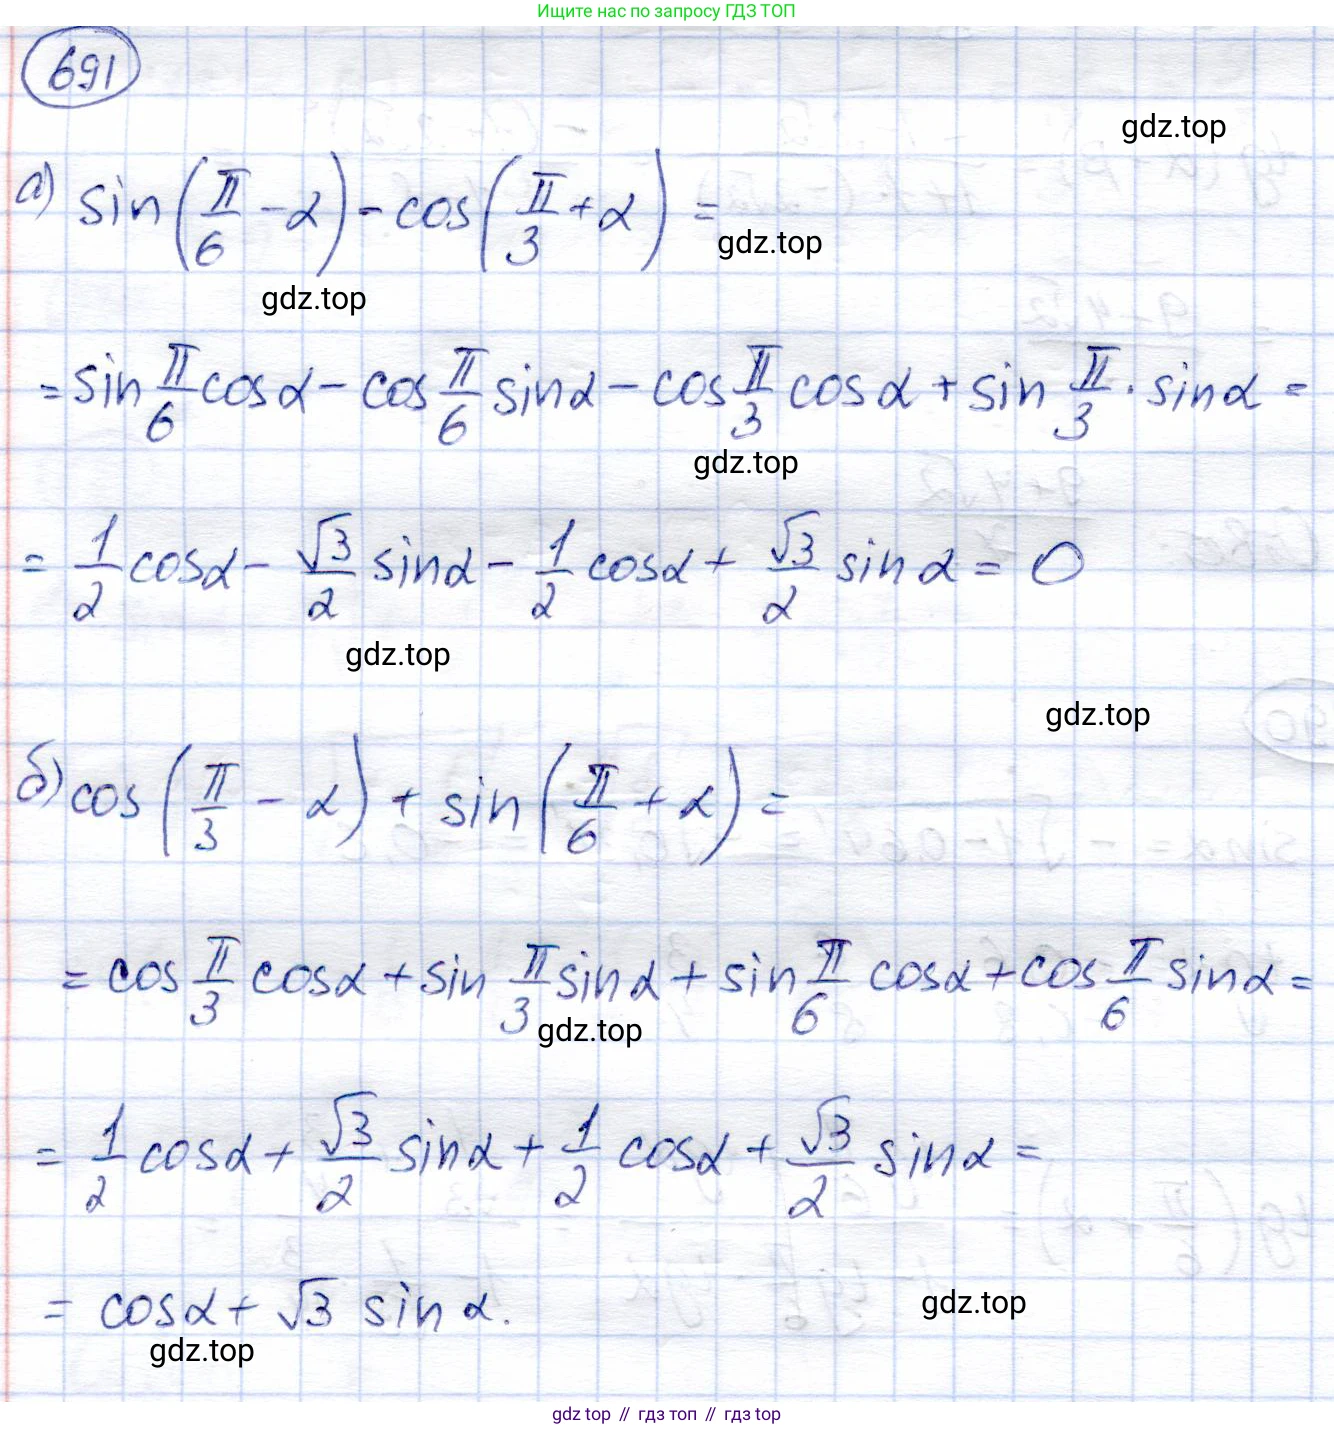 Ищите нас по запросу ГДЗ ТОП
691
gdz.top
а) sin(π/6 - α) - cos(π/3 + α) =
gdz.top
gdz.top
= sin π/6 cosα - cos π/6 sinα - cos π/3 cosα + sin π/3 · sinα =
gdz.top
= 1/2 cosα - √3/2 sinα - 1/2 cosα + √3/2 sinα = 0
gdz.top
gdz.top
б) cos(π/3 - α) + sin(π/6 + α) =
= cos π/3 cosα + sin π/3 sinα + sin π/6 cosα + cos π/6 sinα =
gdz.top
= 1/2 cosα + √3/2 sinα + 1/2 cosα + √3/2 sinα =
= cosα + √3 sinα.
gdz.top
gdz.top
gdz top // гдз топ // gdz top